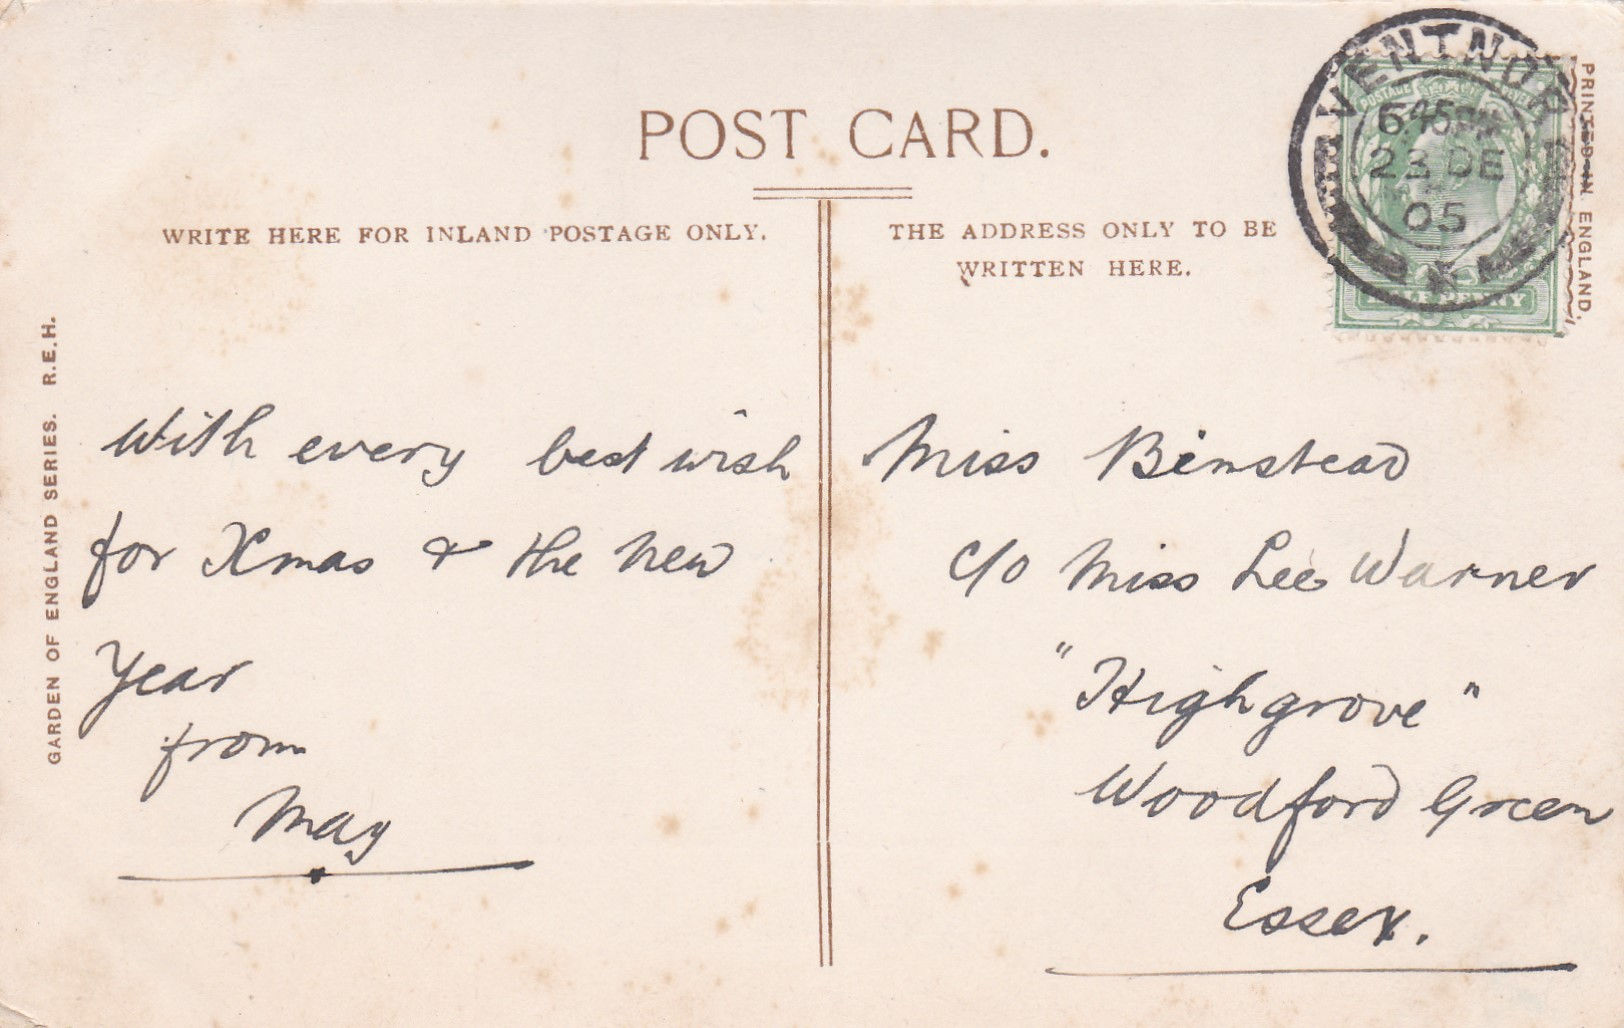 POST CARD.
WRITE HERE FOR INLAND POSTAGE ONLY.
THE ADDRESS ONLY TO BE
WRITTEN HERE.
PRINTED IN ENGLAND.
GARDEN OF ENGLAND SERIES. R.E.H.
VENTNOR
6 45 PM
23 DE
05
POSTAGE
HALF PENNY
With every best wish
for Xmas & the New
Year
from
May
Miss Binstead
c/o Miss Lee Warner
"Highgrove"
Woodford Green
Essex.